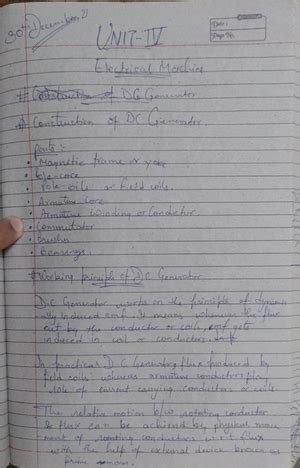 30th December, 21
Date:
Page No.
UNIT-IV
Electrical Machine
# Construction of DC Generator
Construction of DC Generator.
parts :-
• Magnetic frame or yoke
• Pole-core
• Pole-coils or field coils.
• Armature core
• Armature winding or Conductor.
• Commutator
• brushes
• bearings.
# Working principle of DC Generator
D.C Generator works on the principle of dynamic
ally induced emf. It means whenever the flux
cut by the conductor or coils, emf gets
induced in coil or conductor
In practical DC Generator flux produced by
field coils whereas armature conductors play
role of current carrying conductors or coils
The relative motion b/w rotating conductor
& flux can be achieved by physical move
ment of rotating conductors w.r.t flux
with the help of external device known as
prime mover.